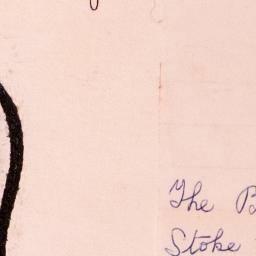 The B
Stoke